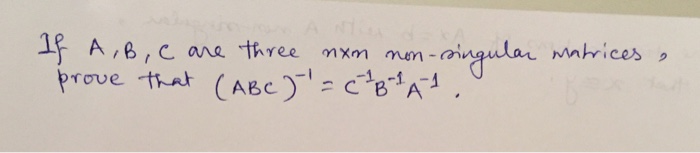 If A, B, C are three nxn non-singular matrices,
prove that (ABC)⁻¹ = C⁻¹B⁻¹A⁻¹.